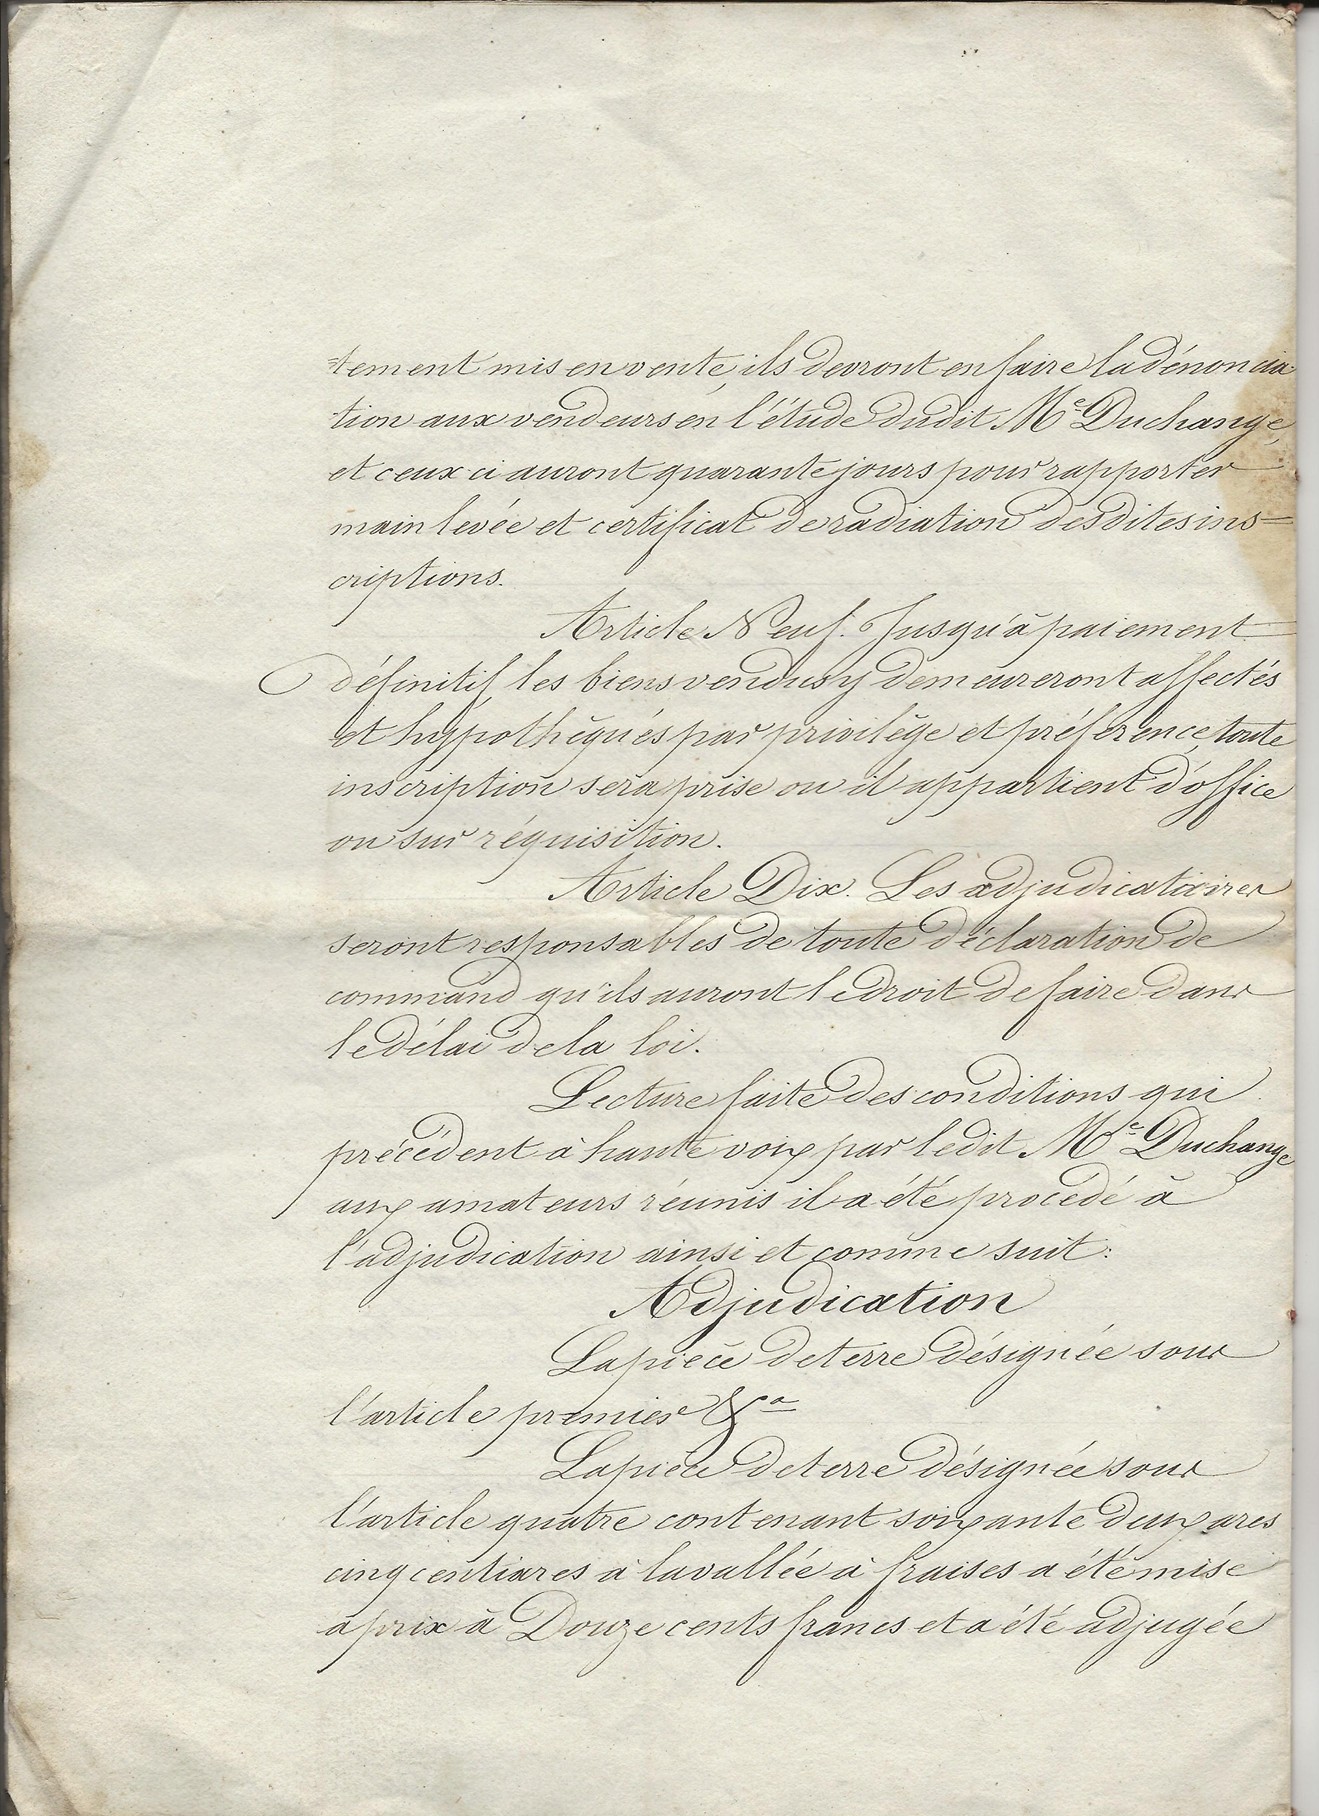 =tement mis en vente, ils devront en faire la dénoncia
tion aux vendeurs en l'étude dudit Me Duchange,
et ceux ci auront quarante jours pour rapporter
main levée et certificat de radiation desdites ins=
criptions.
Article Neuf. Jusqu'à paiement
définitif les biens vendus y demeureront affectés
et hypothèqués par privilège et préférence, toute
inscription sera prise ou il appartient d'office
ou sur réquisition.
Article Dix. Les adjudicataires
seront responsables de toute déclaration de
command qu'ils auront le droit de faire dans
le délai de la loi.
Lecture faite des conditions qui
précèdent à haute voix par ledit Me Duchange
aux amateurs réunis il a été procédé à
l'adjudication ainsi et comme suit:
Adjudication
La pièce de terre désignée sous
l'article premier &ca
La pièce de terre désignée sous
l'article quatre contenant soixante deux ares
cinq centiares à la vallée à fraises a été mise
à prix à Douze cents francs et a été adjugée